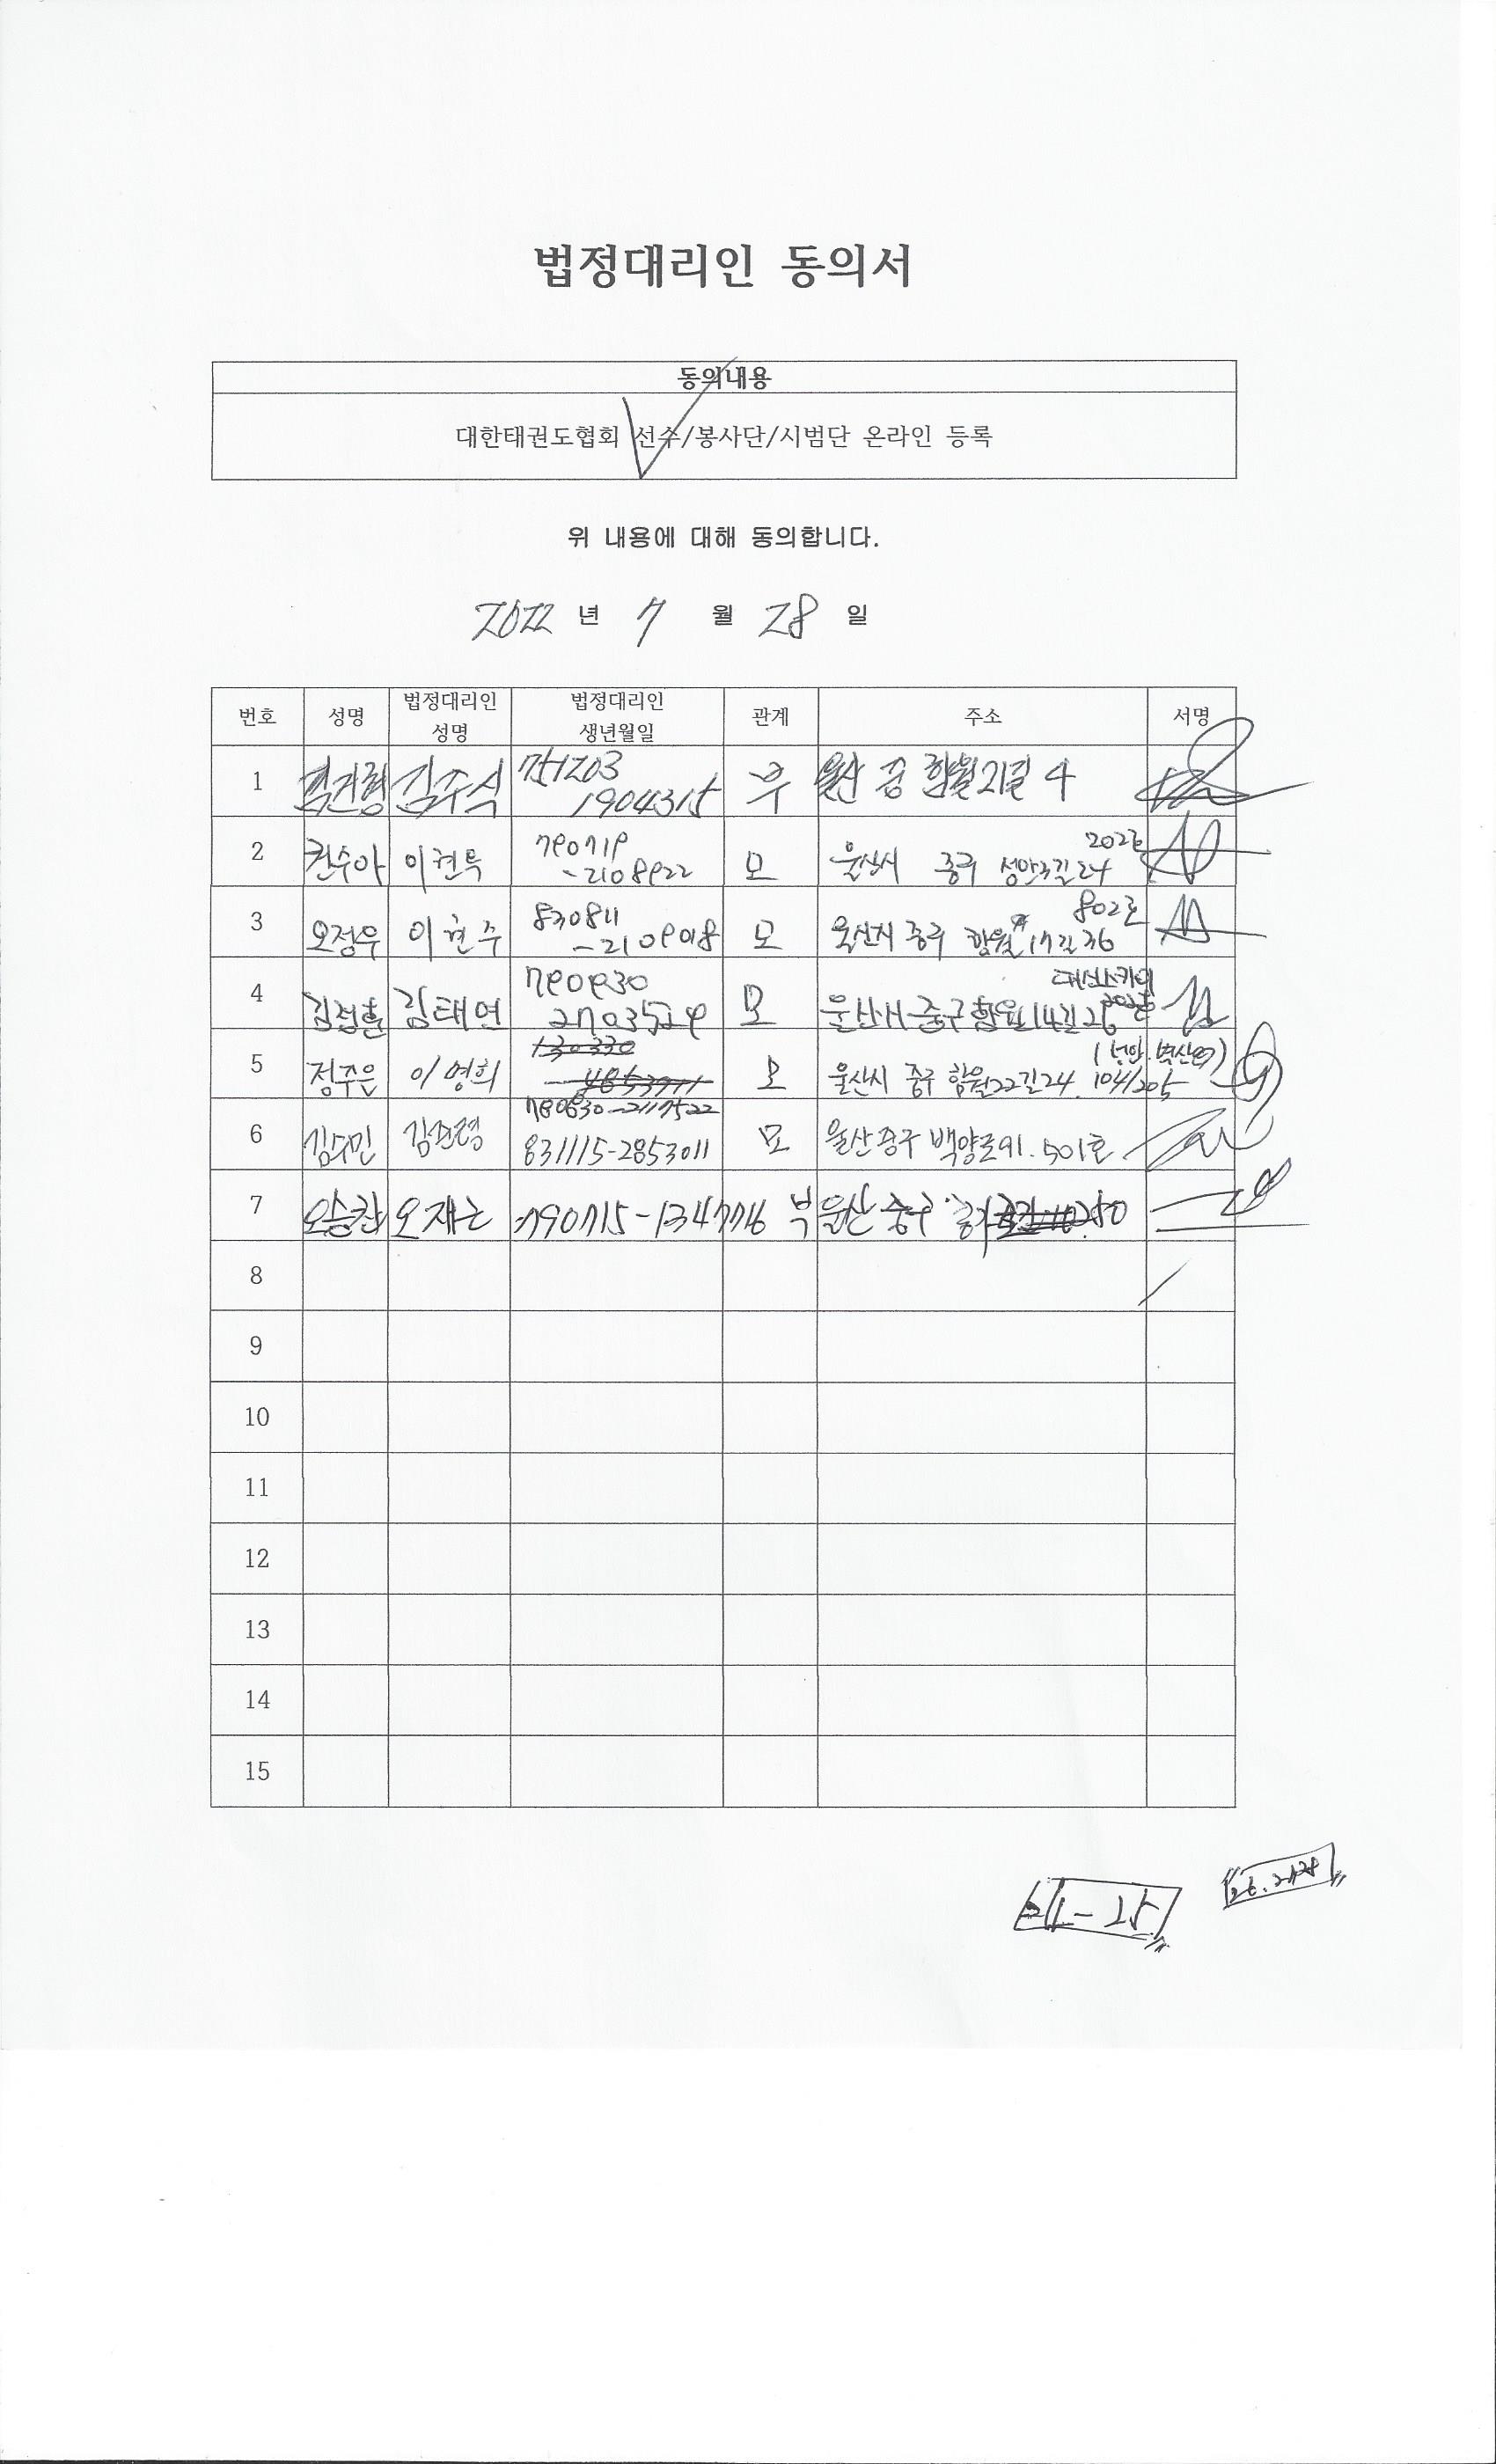 법정대리인 동의서
동의내용
대한태권도협회 선수/봉사단/시범단 온라인 등록
위 내용에 대해 동의합니다.
2022 년 7 월 28 일
번호 성명 법정대리인 성명 법정대리인 생년월일 관계 주소 서명
1 김주식 751203 1904315 부 울산 중 함월21길 4
2 권수아 이현특 790719 -2108922 모 울산시 중구 성안3길24 202호
3 오정우 이현수 830811 -2109018 모 울산시 중구 함월17길 36 802호
4 김정훈 김태연 790930 모 울산시 중구 함월14길 26
5 정주은 이영희 모 울산시 중구 함월22길24. 104/205
780630-2117522
6 김수민 831115-2853011 모 울산중구 백양로91. 501호
7 오승찬 오재근 790715-1347716 부 울산 중구
8
9
10
11
12
13
14
15